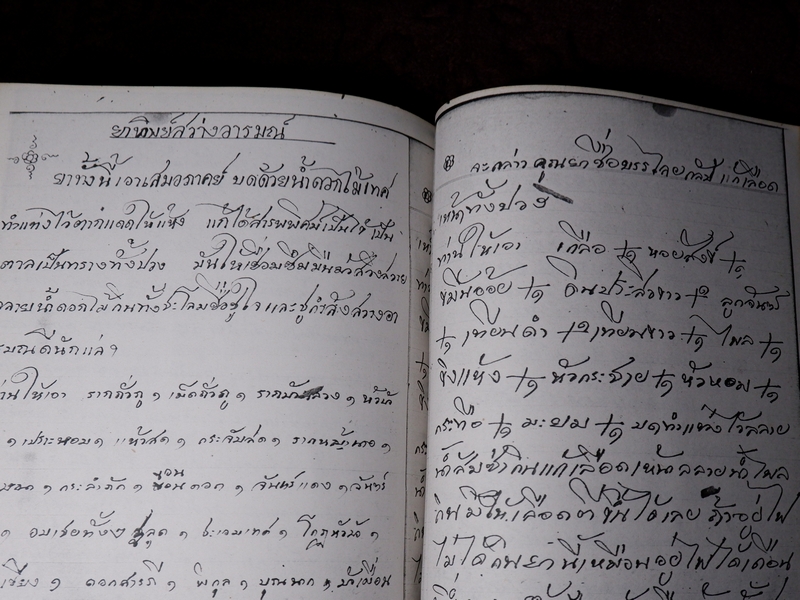 ยาทิพย์สว่างอารมณ์
ยาทั้งนี้เอาเสมอภาคย์ บดด้วยน้ำดอกไม้เทศ
ทำแท่งไว้ตากแดดให้แห้ง แก้ได้สารพพิศม์เป็นไข้เป็น
ตาลเป็นทรางทั้งปวง มันให้เชื่อมซึมมึนมัวสวิงสวาย
ละลายน้ำดอกไม้กินทั้งชะโลมชื่อชูใจและชูกำลังสว่างอา
รมณดีนักแล ฯ
ท่านให้เอา รากถั่วภู ๑ เม็ดถั่วภู ๑
๑ เปราะหอม ๑ แห้วสด ๑ กระจับสด ๑
๑ กระลำภัก ๑ ขอนดอก ๑ จันทร์แดง ๑ จันทร์
๑ อบเชยทั้ง ๒ ๑ ชะเอมเทศ ๑ โกฎหัวบัว ๑
เชียง ๑ ดอกสารภี ๑ พิกุล ๑ บุนนาค ๑
จะกล่าว คุณยาชื่อบรรไลยกลัป์ แก้เลือด
เน่าทั้งปวง ฯ
ท่านให้เอา เกลือ +๑ หอยสังข์ +๑
ขมีนอ้อย +๑ ดินประสิวขาว +๒ ลูกจันทร์
+๑ เทียนดำ +๒ เทียนขาว +๑ ไพล +๑
ขิงแห้ง +๑ หัวกระชาย +๑ หัวหอม +๑
กระทือ +๑ มะยม +๑ บดทำแท่งไว้ละลาย
น้ำส้มซ่ากินแก้เลือดเน่าละลายน้ำไพล
กินมิให้เลือดตีขึ้นได้เลย ถ้าอยู่ไฟ
ไม่ได้กินยานี้เหมือนอยู่ไฟได้เดือน